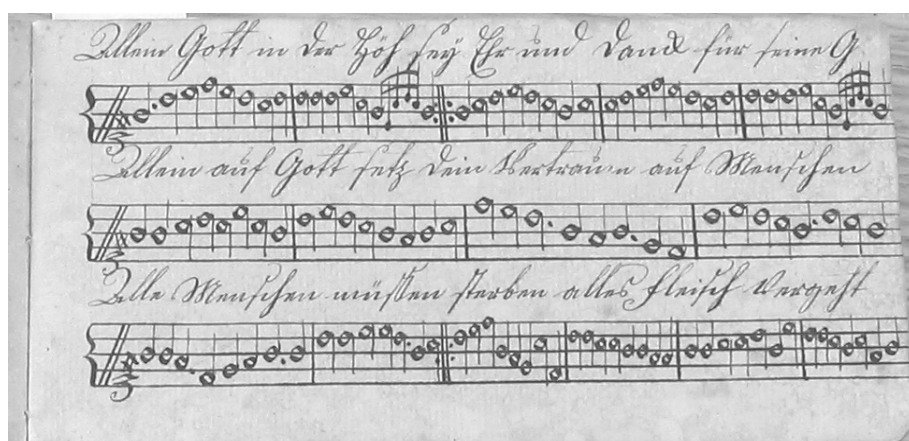 Allein Gott in der Höh sey Ehr und Dank für seine G
Allein auf Gott setz dein Vertraun auf Menschen
Alle Menschen müssen sterben alles fleisch vergeht